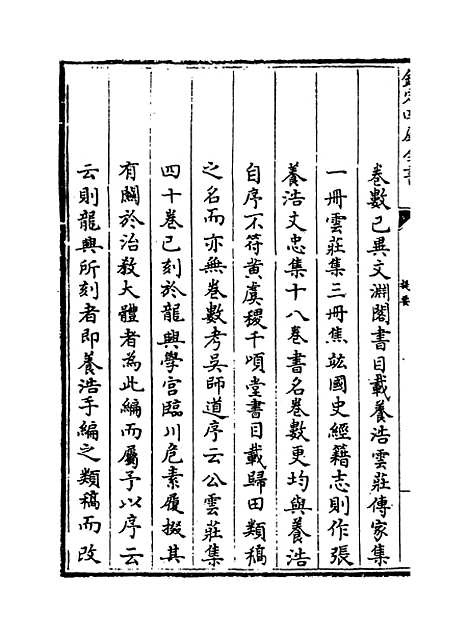 欽定四庫全書
提要
卷數已異文淵閣書目載養浩雲莊傳家集
一冊雲莊集三冊焦竑國史經籍志則作張
養浩文忠集十八卷書名卷數更均與養浩
自序不符黄虞稷千頃堂書目載歸田類稿
之名而亦無卷數考吳師道序云公雲莊集
四十卷已刻於龍興學官臨川危素履掇其
有關於治教大體者為此編而屬予以序云
云則龍興所刻者即養浩手編之類稿而改